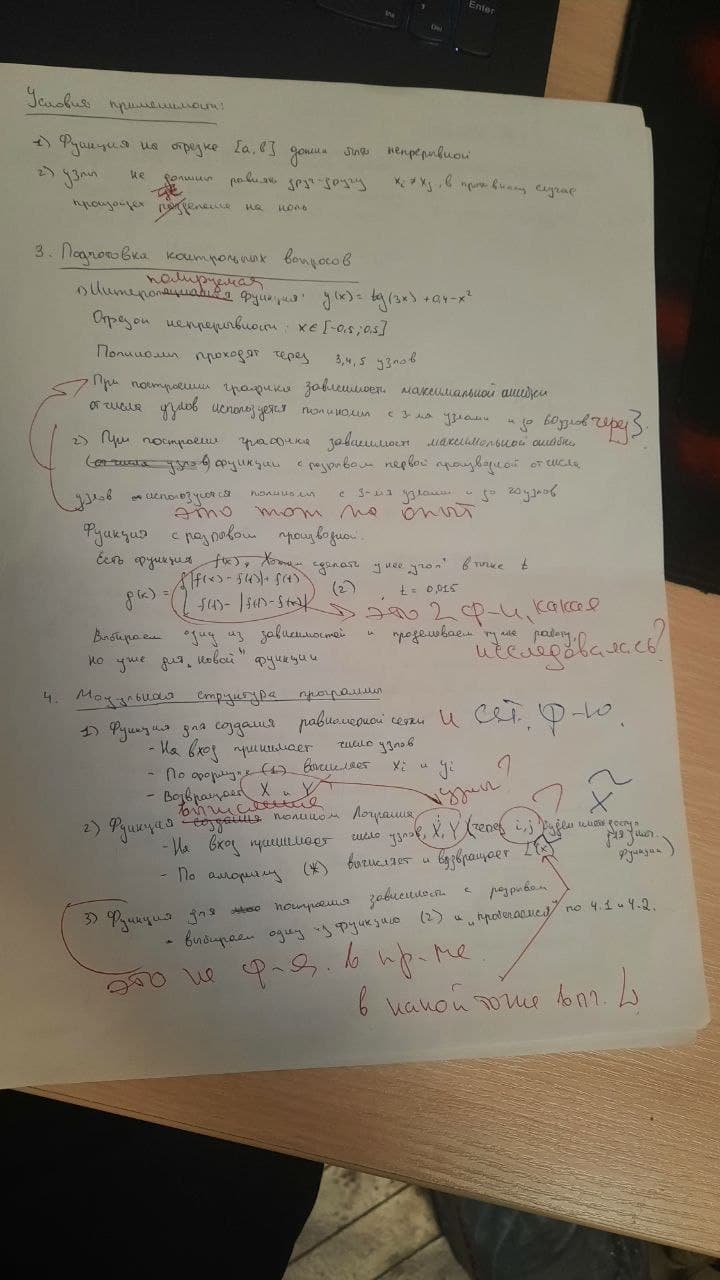 Enter
Ins
Del
Условия применимости:
1) Функция на отрезке [a, b] должна быть непрерывной
2) узлы не должны равняться друг-другу xi ≠ xj, в противном случае
произойдет деление на ноль
3. Подготовка контрольных вопросов
полируемая
1) Интерполяционная функция: y(x) = tg(3x) + 0,4 - x²
Отрезок непрерывности: x ∈ [-0,5 ; 0,5]
Полиномы проходят через 3, 4, 5 узлов
При построении графика зависимость максимальной ошибки
от числа узлов используется полиномы с 3-мя узлами и до 60 узлов через 3.
2) При построении графика зависимость максимальной ошибки
(от числа узлов) функции с разрывом первой производной от числа
узлов используется полиномы с 3-мя узлами и до узлов
это тот по опыт
Функция с разрывом производной.
Есть функция f(x), Хотим сделать у нее "угол" в точке t
g(x) = { |f(x) - f(t)| + f(t)
f(t) - |f(t) - f(x)| (2) , t = 0,015
это 2 ф-и, какая
Выбираем одну из зависимостей и проделываем ту же работу,
исследовалась?
но уже для "новой" функции
4. Модульная структура программы
1) Функция для создания равномерной сетки и сет. ф-ю.
- На вход принимает число узлов
- По формуле (1) вычисляет xi и yi
- Возвращает X и Y
узлы?
вычисление
2) Функция создания полином Лагранжа
- На вход принимает число узлов, X, Y (через i, j будем иметь доступ
функции)
?
x̃
- По алгоритму (*) вычисляет и возвращает L(x)
3) Функция для построения зависимость с разрывом
- выбираем одну из функцию (2) и "прогоняемся" по 4.1 и 4.2.
это не ф-я в пр-ме
в какой точке вып. L